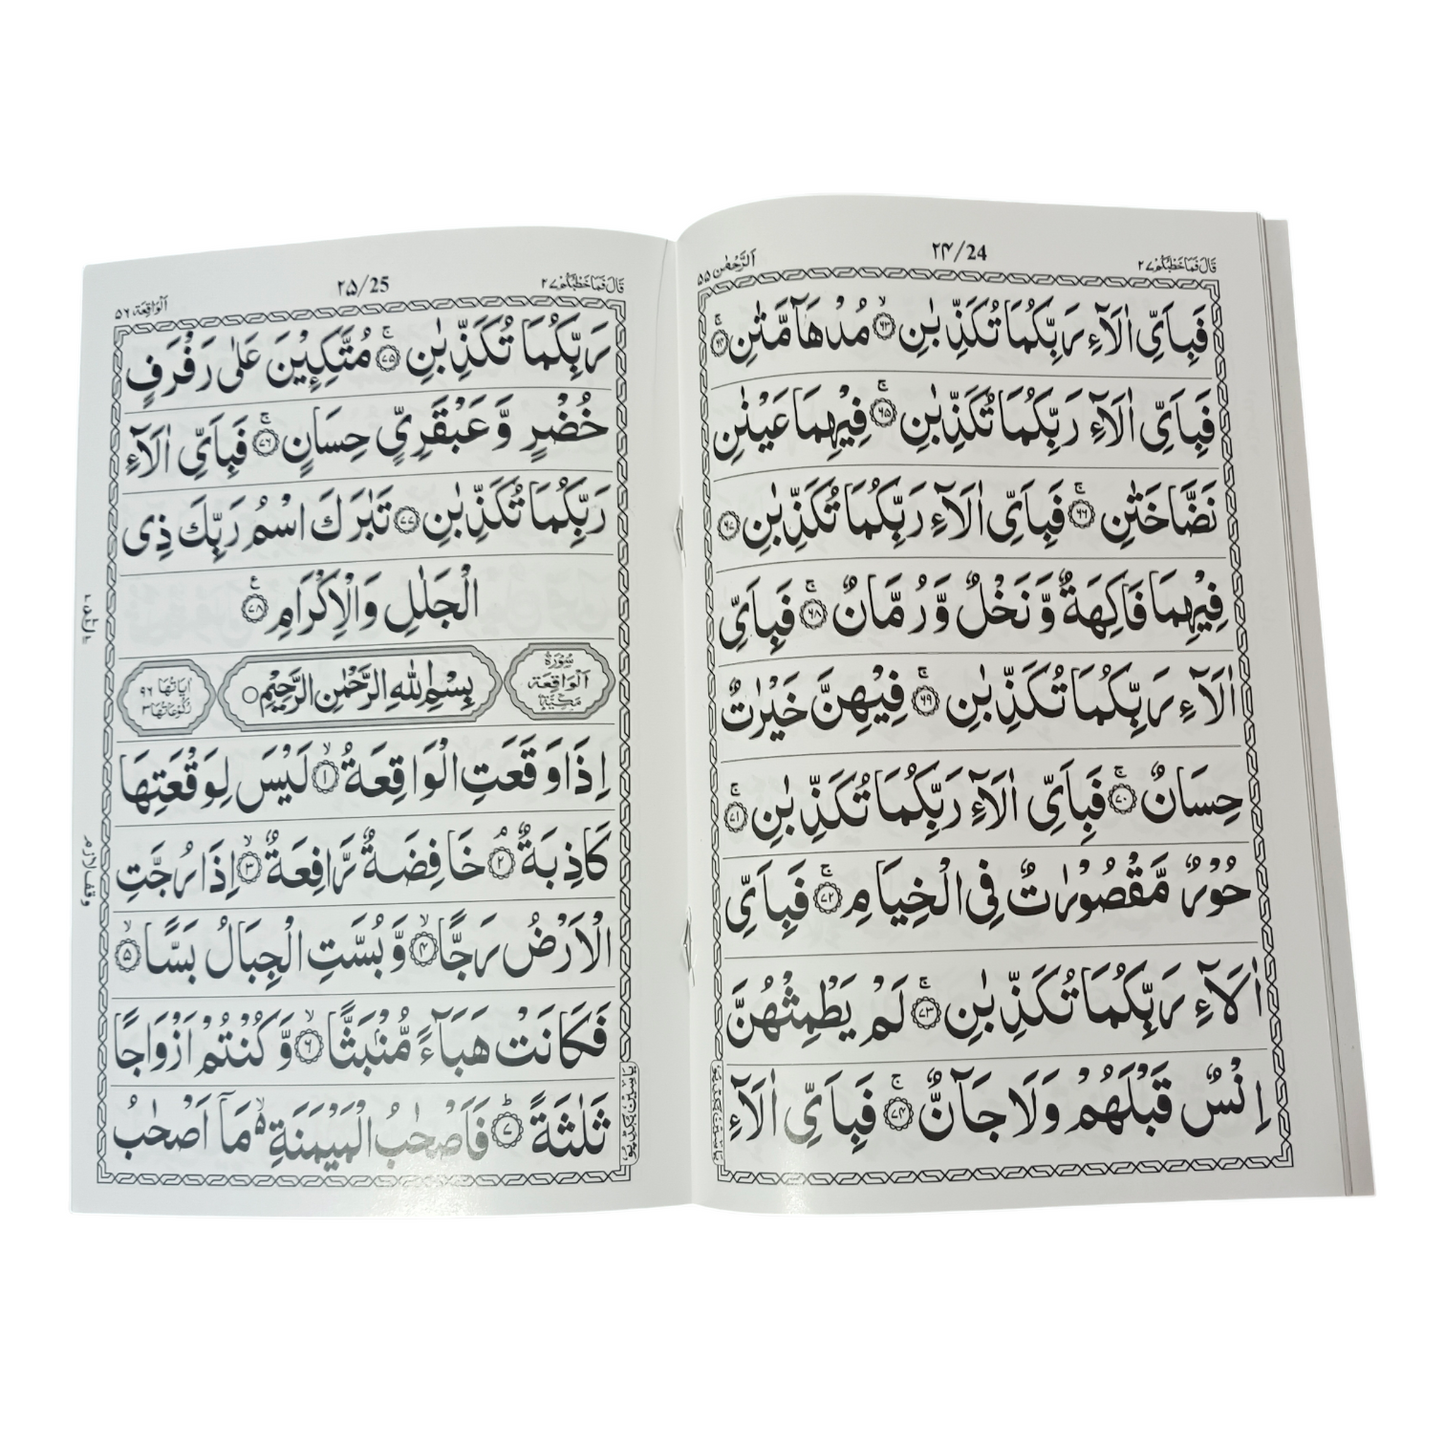 قَالَ فَمَا خَطْبُكُمْ ٢٧
٢۴/24
اَلرَّحْمٰن ٥٥
فَبِاَىِّ اٰلَآءِ رَبِّكُمَا تُكَذِّبٰنِ ۙ﴿۶۳﴾ مُدْهَآمَّتٰنِ ۚ﴿۶۴﴾
فَبِاَىِّ اٰلَآءِ رَبِّكُمَا تُكَذِّبٰنِ ۚ﴿۶۵﴾ فِيْهِمَا عَيْنٰنِ
نَضَّاخَتٰنِ ۚ﴿۶۶﴾ فَبِاَىِّ اٰلَآءِ رَبِّكُمَا تُكَذِّبٰنِ ﴿۶۷﴾
فِيْهِمَا فَاكِهَةٌ وَّنَخْلٌ وَّرُمَّانٌ ۚ﴿۶۸﴾ فَبِاَىِّ
اٰلَآءِ رَبِّكُمَا تُكَذِّبٰنِ ۚ﴿۶۹﴾ فِيْهِنَّ خَيْرٰتٌ
حِسَانٌ ۚ﴿۷۰﴾ فَبِاَىِّ اٰلَآءِ رَبِّكُمَا تُكَذِّبٰنِ ۚ﴿۷۱﴾
حُوْرٌ مَّقْصُوْرٰتٌ فِى الْخِيَامِ ۚ﴿۷۲﴾ فَبِاَىِّ
اٰلَآءِ رَبِّكُمَا تُكَذِّبٰنِ ۚ﴿۷۳﴾ لَمْ يَطْمِثْهُنَّ
اِنْسٌ قَبْلَهُمْ وَلَا جَآنٌّ ۚ﴿۷۴﴾ فَبِاَىِّ اٰلَآءِ
قَالَ فَمَا خَطْبُكُمْ ٢٧
٢۵/25
اَلْوَاقِعَة ٥٦
رَبِّكُمَا تُكَذِّبٰنِ ۚ﴿۷۵﴾ مُتَّكِـِٕيْنَ عَلٰى رَفْرَفٍ
خُضْرٍ وَّعَبْقَرِىٍّ حِسَانٍ ۚ﴿۷۶﴾ فَبِاَىِّ اٰلَآءِ
رَبِّكُمَا تُكَذِّبٰنِ ﴿۷۷﴾ تَبٰرَكَ اسْمُ رَبِّكَ ذِى
الْجَلٰلِ وَالْاِكْرَامِ ﴿۷۸﴾ ع
سُوْرَةُ الْوَاقِعَة مَكِّيَّة
بِسْمِ اللهِ الرَّحْمٰنِ الرَّحِيْمِ ○
اٰيَاتُهَا ٩٦ رُكُوْعَاتُهَا ٣
اِذَا وَقَعَتِ الْوَاقِعَةُ ۙ﴿۱﴾ لَيْسَ لِوَقْعَتِهَا
كَاذِبَةٌ ۘ﴿۲﴾ خَافِضَةٌ رَّافِعَةٌ ۙ﴿۳﴾ اِذَا رُجَّتِ
الْاَرْضُ رَجًّا ۙ﴿۴﴾ وَّبُسَّتِ الْجِبَالُ بَسًّا ۙ﴿۵﴾
فَكَانَتْ هَبَآءً مُّنْۢبَثًّا ۙ﴿۶﴾ وَّكُنْتُمْ اَزْوَاجًا
ثَلٰثَةً ؕ﴿۷﴾ فَاَصْحٰبُ الْمَيْمَنَةِ ۙ۬ مَآ اَصْحٰبُ
وقف لازم